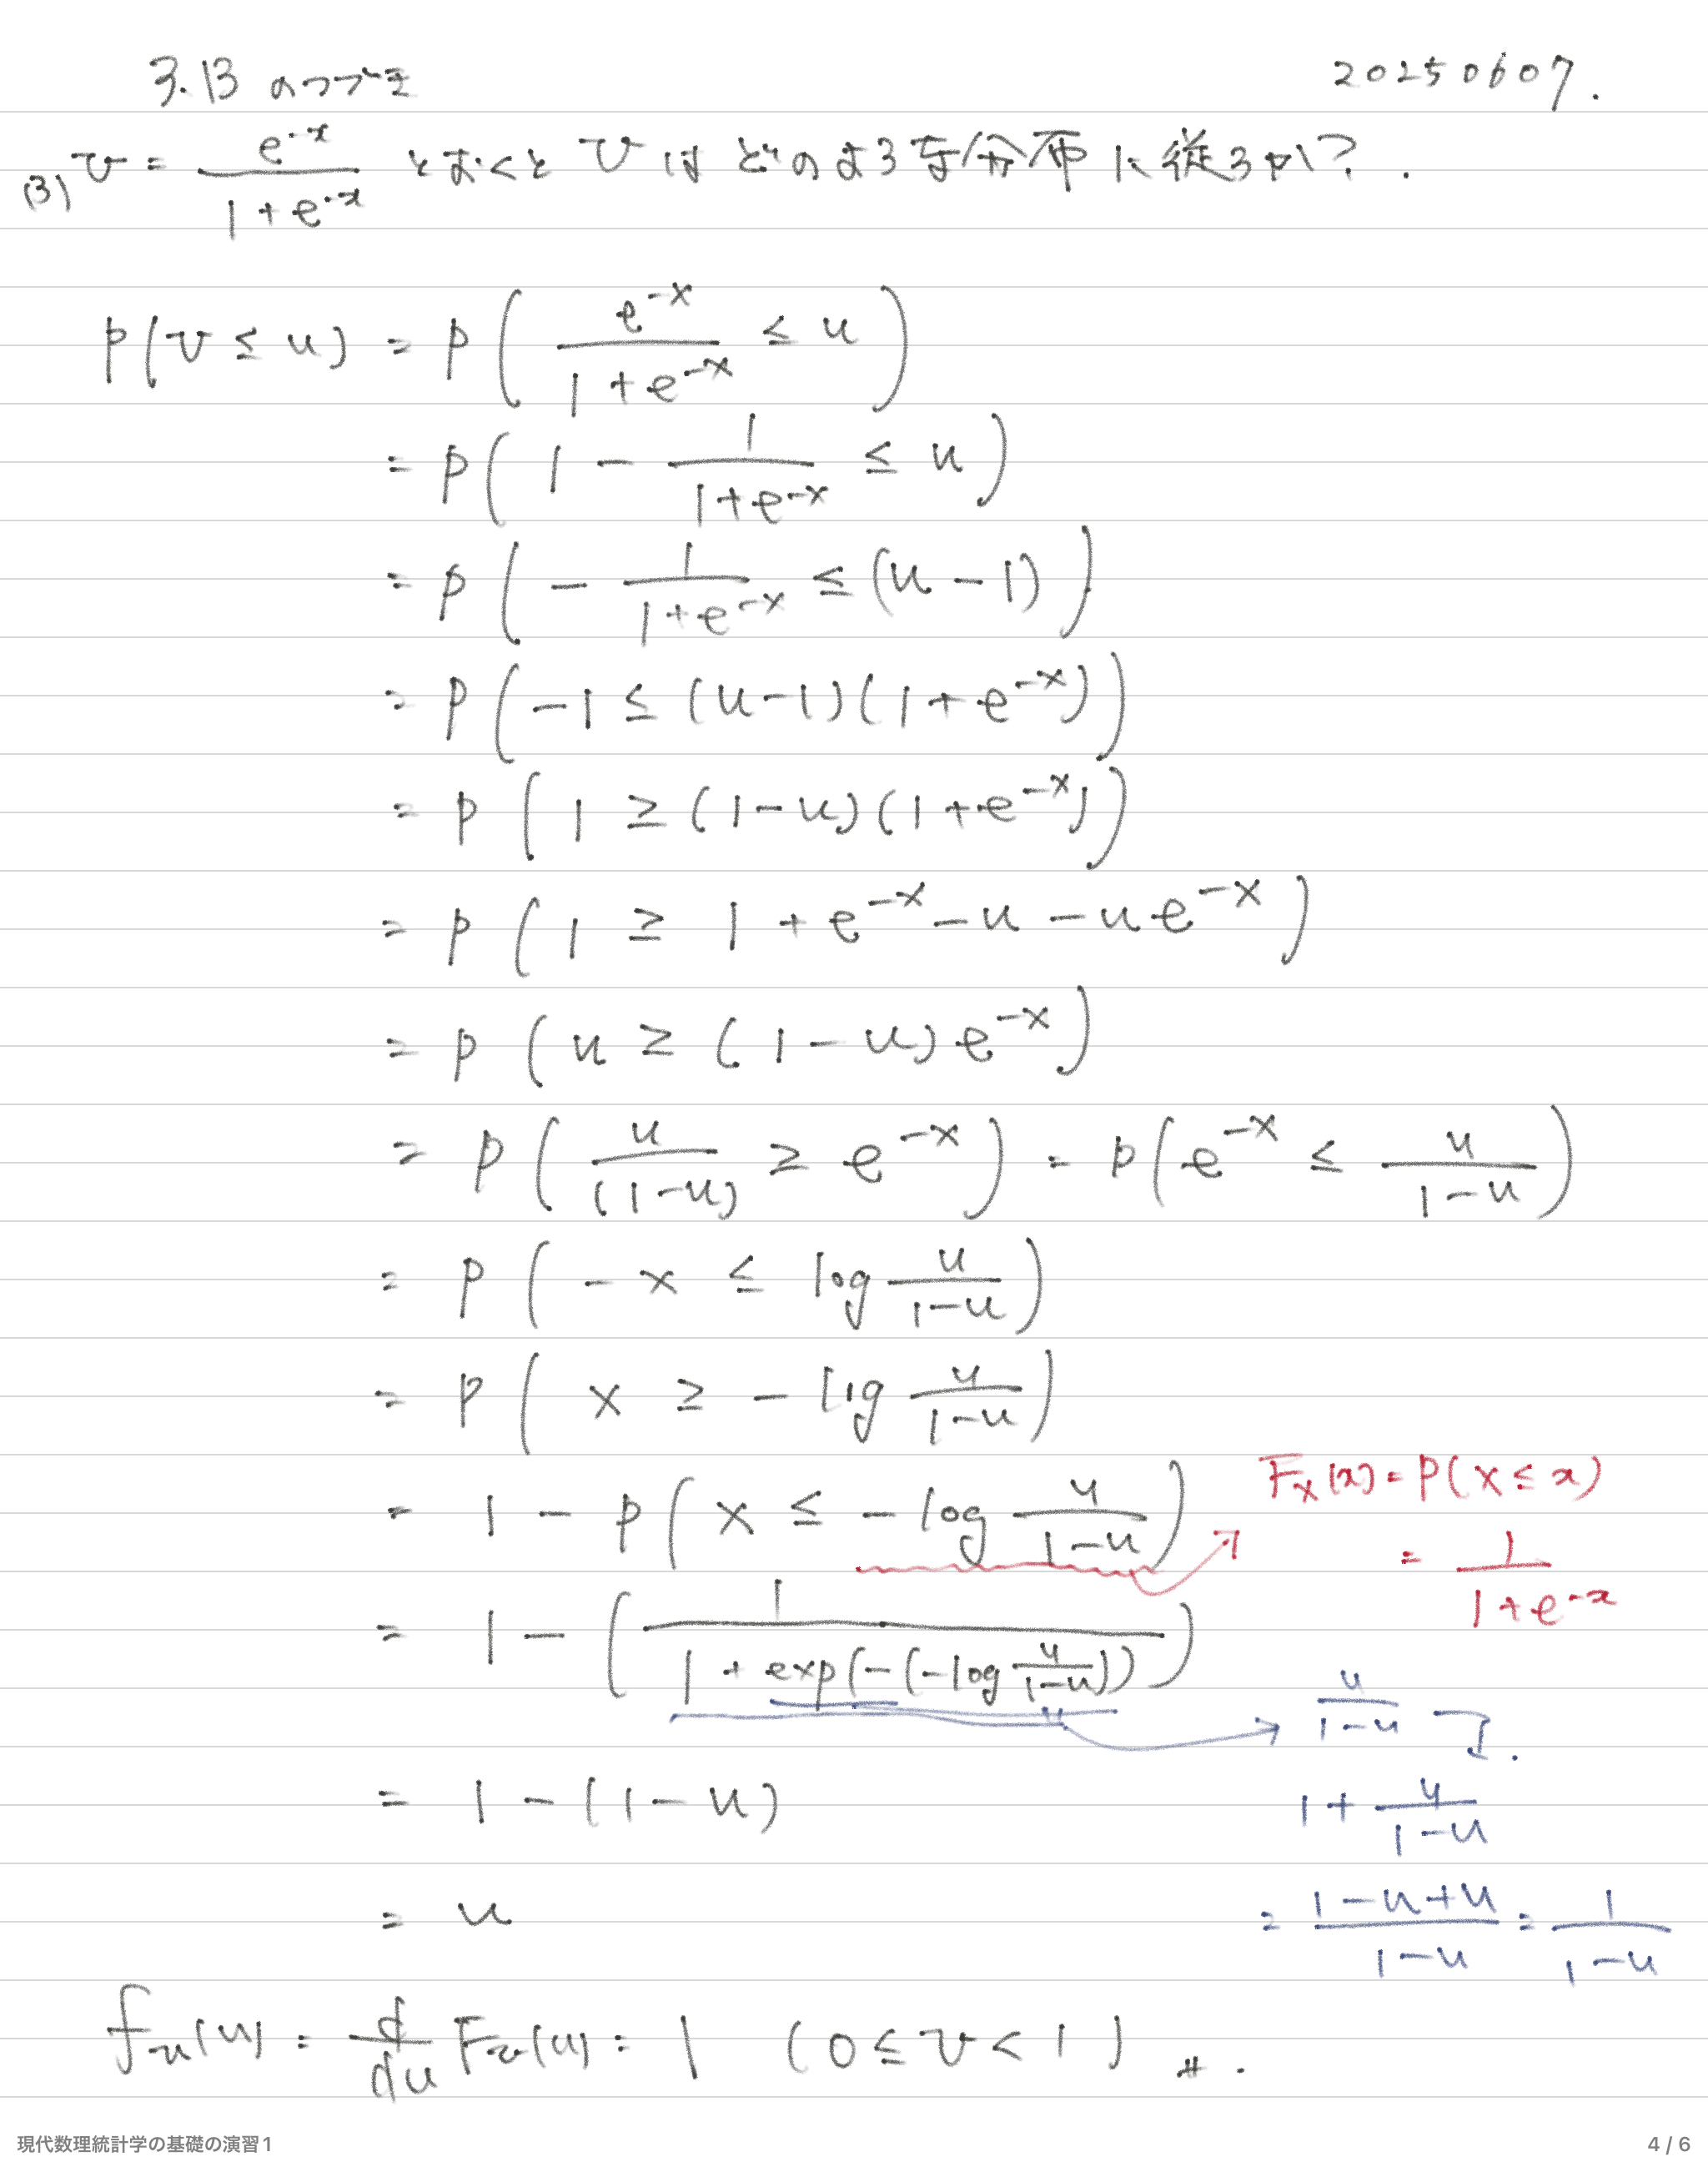 3.13 のつづき 20250607.
(3) V = e^{-x} / (1 + e^{-x}) とおくと V はどのような分布に従うか? .
P(V ≤ u) = P( e^{-X} / (1 + e^{-X}) ≤ u )
= P( 1 - 1 / (1 + e^{-X}) ≤ u )
= P( - 1 / (1 + e^{-X}) ≤ (u - 1) )
= P( -1 ≤ (u-1)(1 + e^{-X}) )
= P( 1 ≥ (1-u)(1 + e^{-X}) )
= P( 1 ≥ 1 + e^{-X} - u - u e^{-X} )
= P( u ≥ (1 - u) e^{-X} )
= P( u / (1-u) ≥ e^{-X} ) = P( e^{-X} ≤ u / (1-u) )
= P( - X ≤ log u / (1-u) )
= P( X ≥ - log u / (1-u) )
= 1 - P( X ≤ - log u / (1-u) )
F_X(x) = P(X ≤ x)
= 1 / (1 + e^{-x})
= 1 - ( 1 / (1 + exp(-(-log u / (1-u)))) )
u / (1-u)
= 1 - (1 - u)
1 + u / (1-u)
= u
= (1-u+u) / (1-u) = 1 / (1-u)
f_u(u) = d/du F_v(u) = 1 (0 ≤ V < 1) #.
現代数理統計学の基礎の演習1
4 / 6